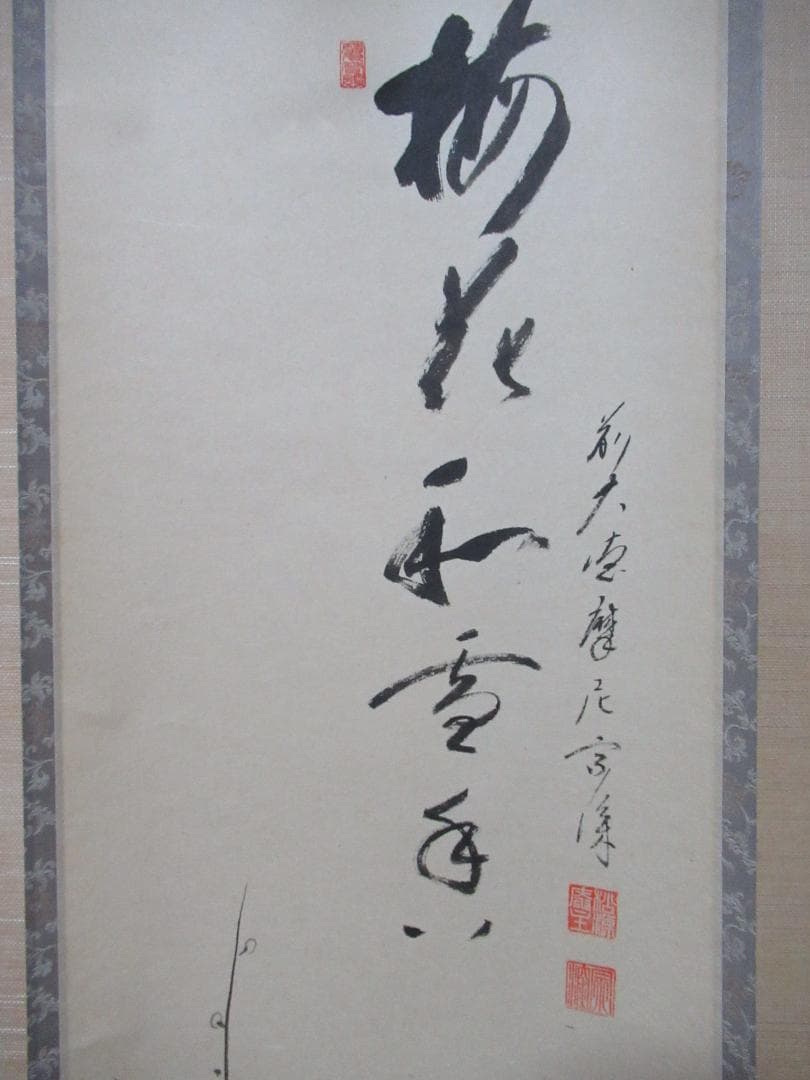 梅花和雪香
前大徳摩尼宗